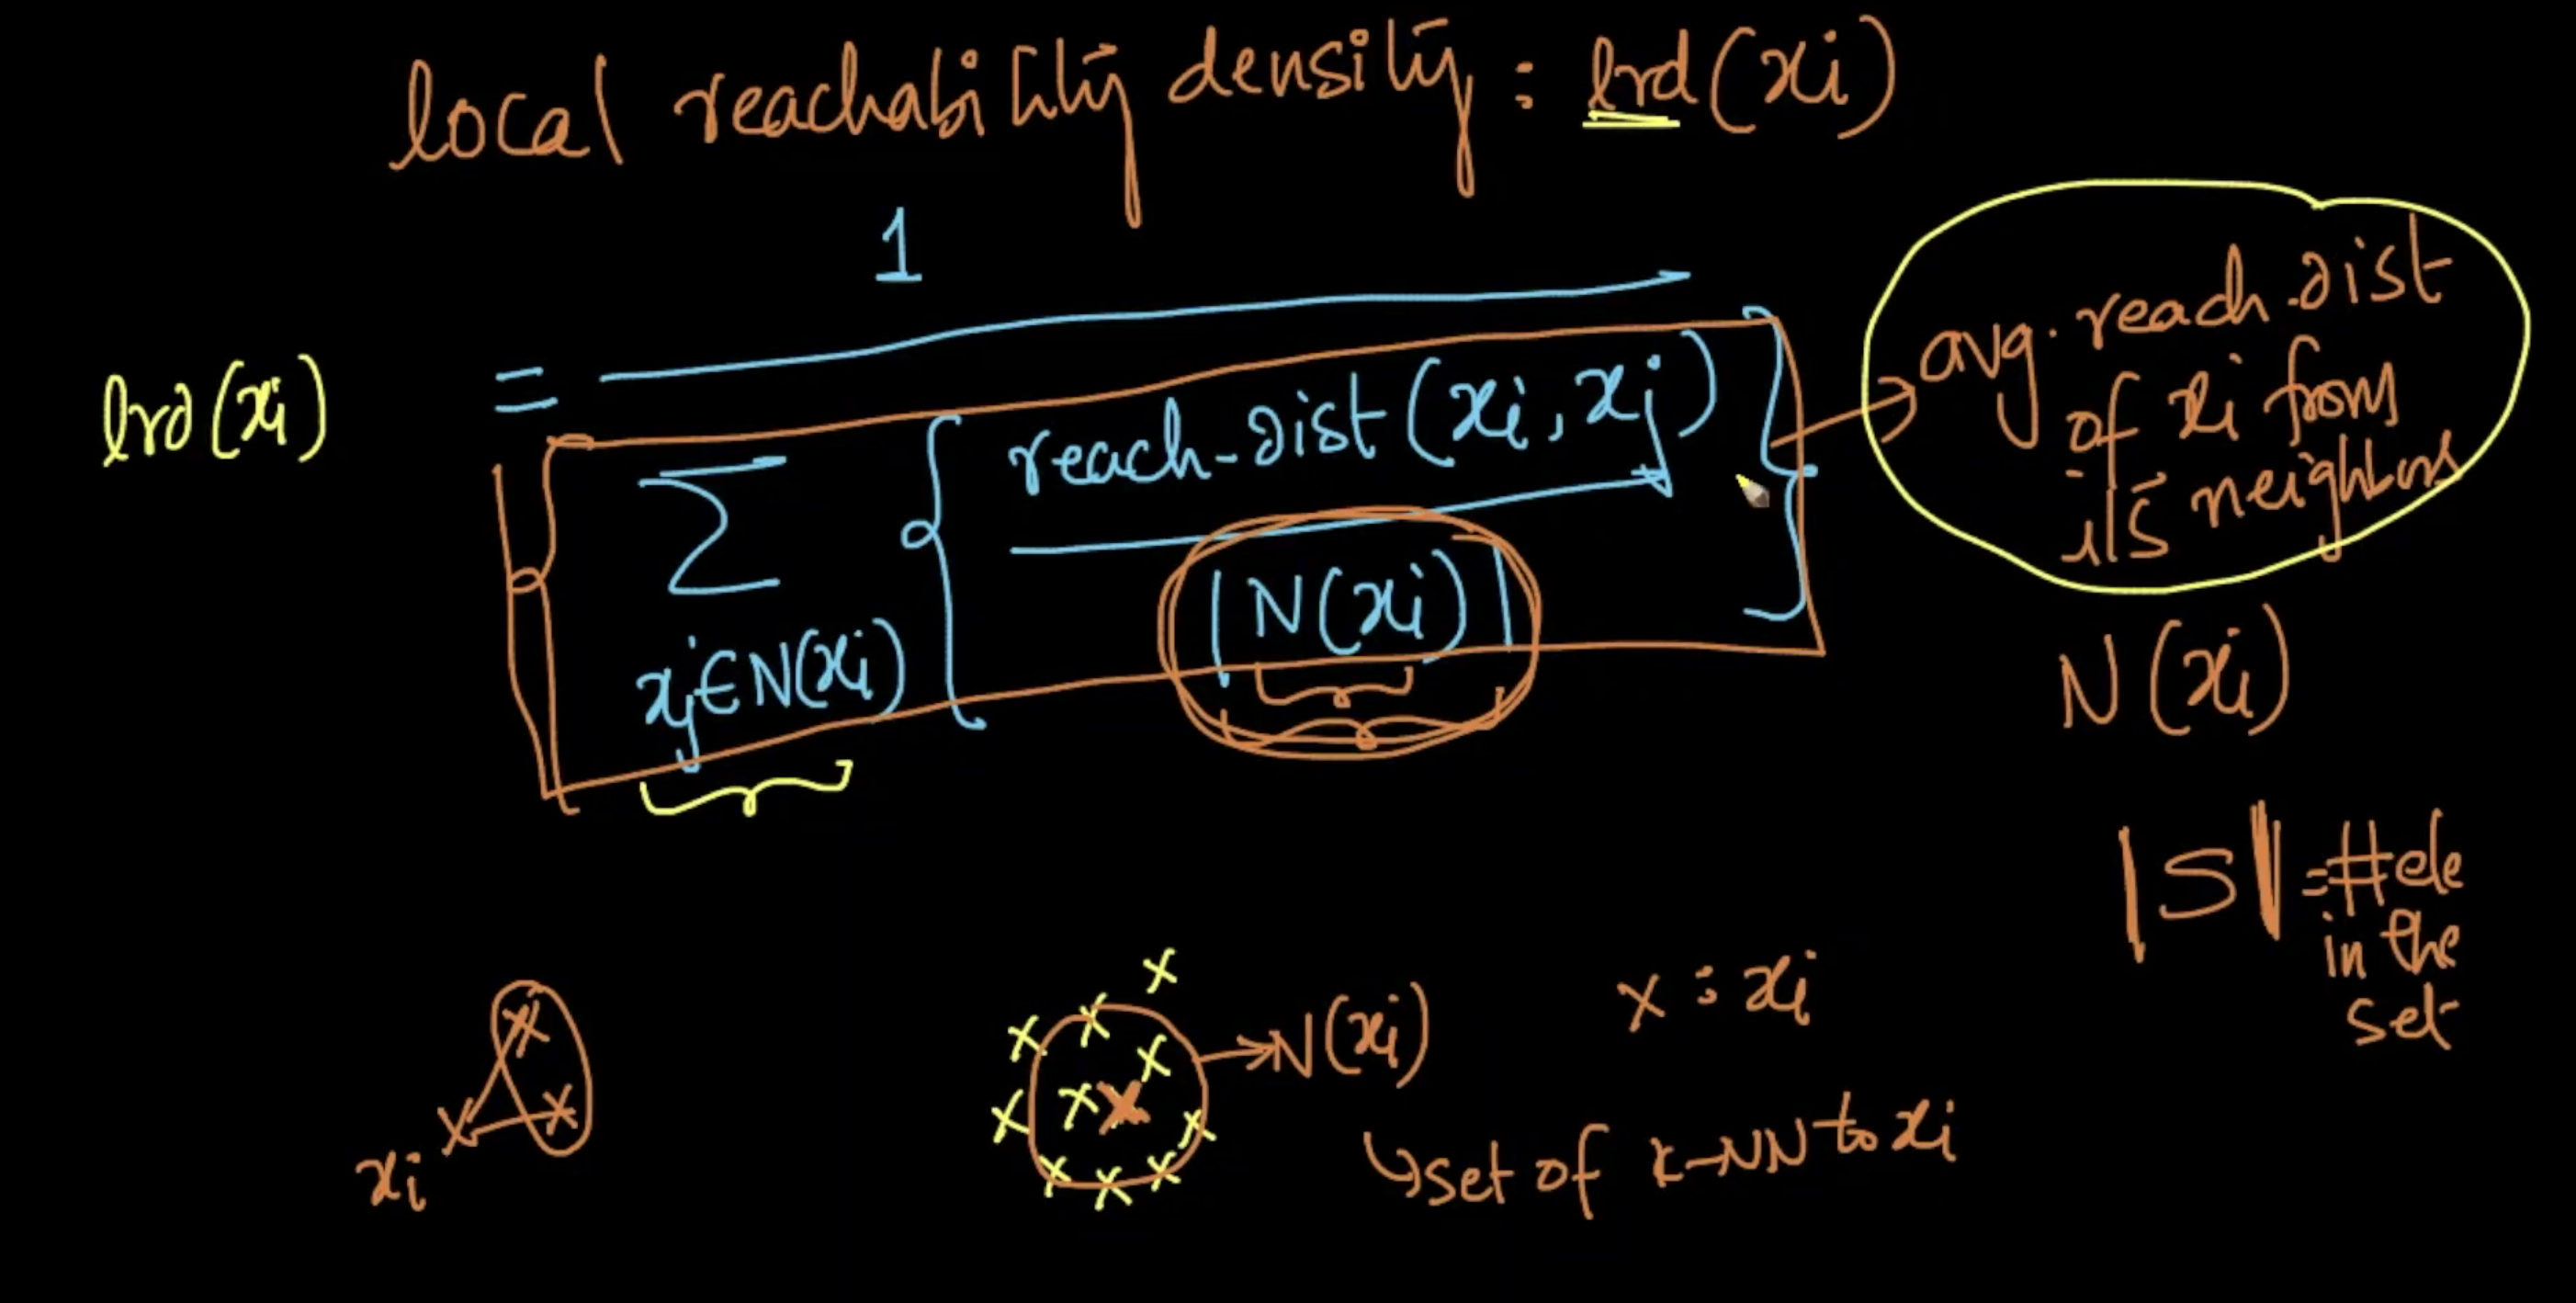 local reachability density : lrd(xi)
1
lrd(xi) =
∑ xj∈N(xi) { reach-dist(xi, xj) / |N(xi)| }
avg. reach-dist
of xi from
its neighbors
N(xi)
|S| = #ele
in the
set
x : xi
N(xi)
set of k-NN to xi
xi